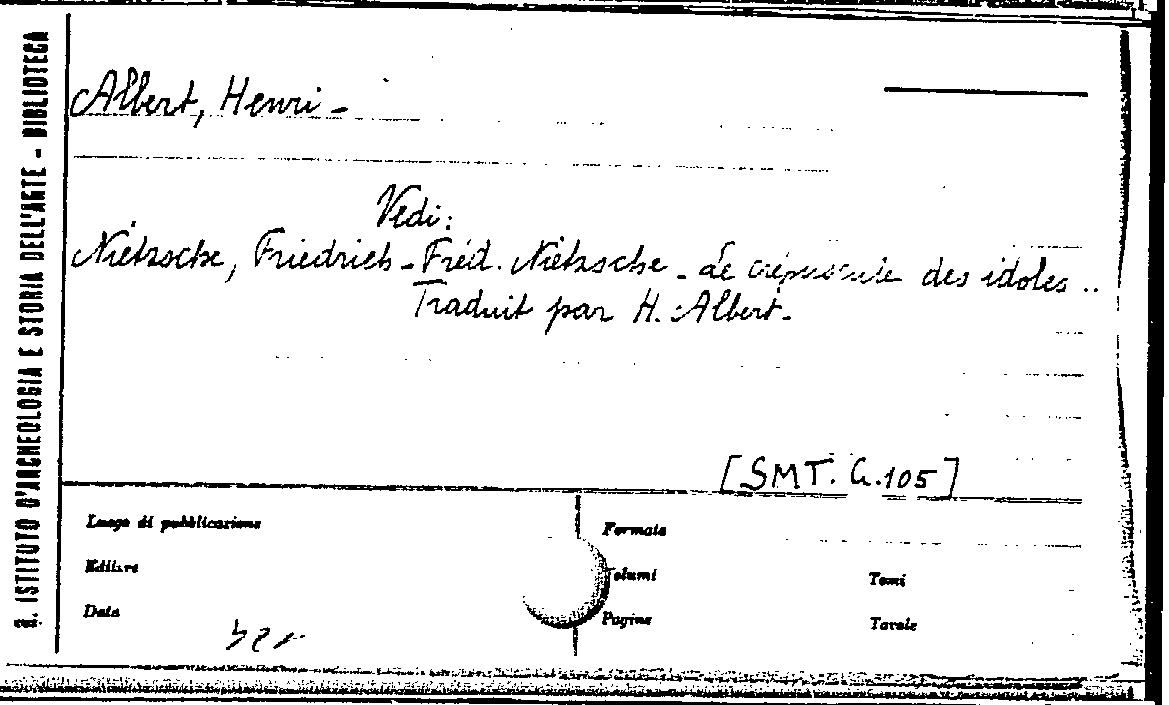 R. ISTITUTO D'ARCHEOLOGIA E STORIA DELL'ARTE - BIBLIOTECA
Albert, Henri -
Vedi:
Nietzsche, Friedrich - Fréd. Nietzsche - Le crépuscule des idoles ..
Traduit par H. Albert -
[SMT. G. 105]
Luogo di pubblicazione
Formato
Editore
Volumi
Tomi
Data
Pagine
Tavole